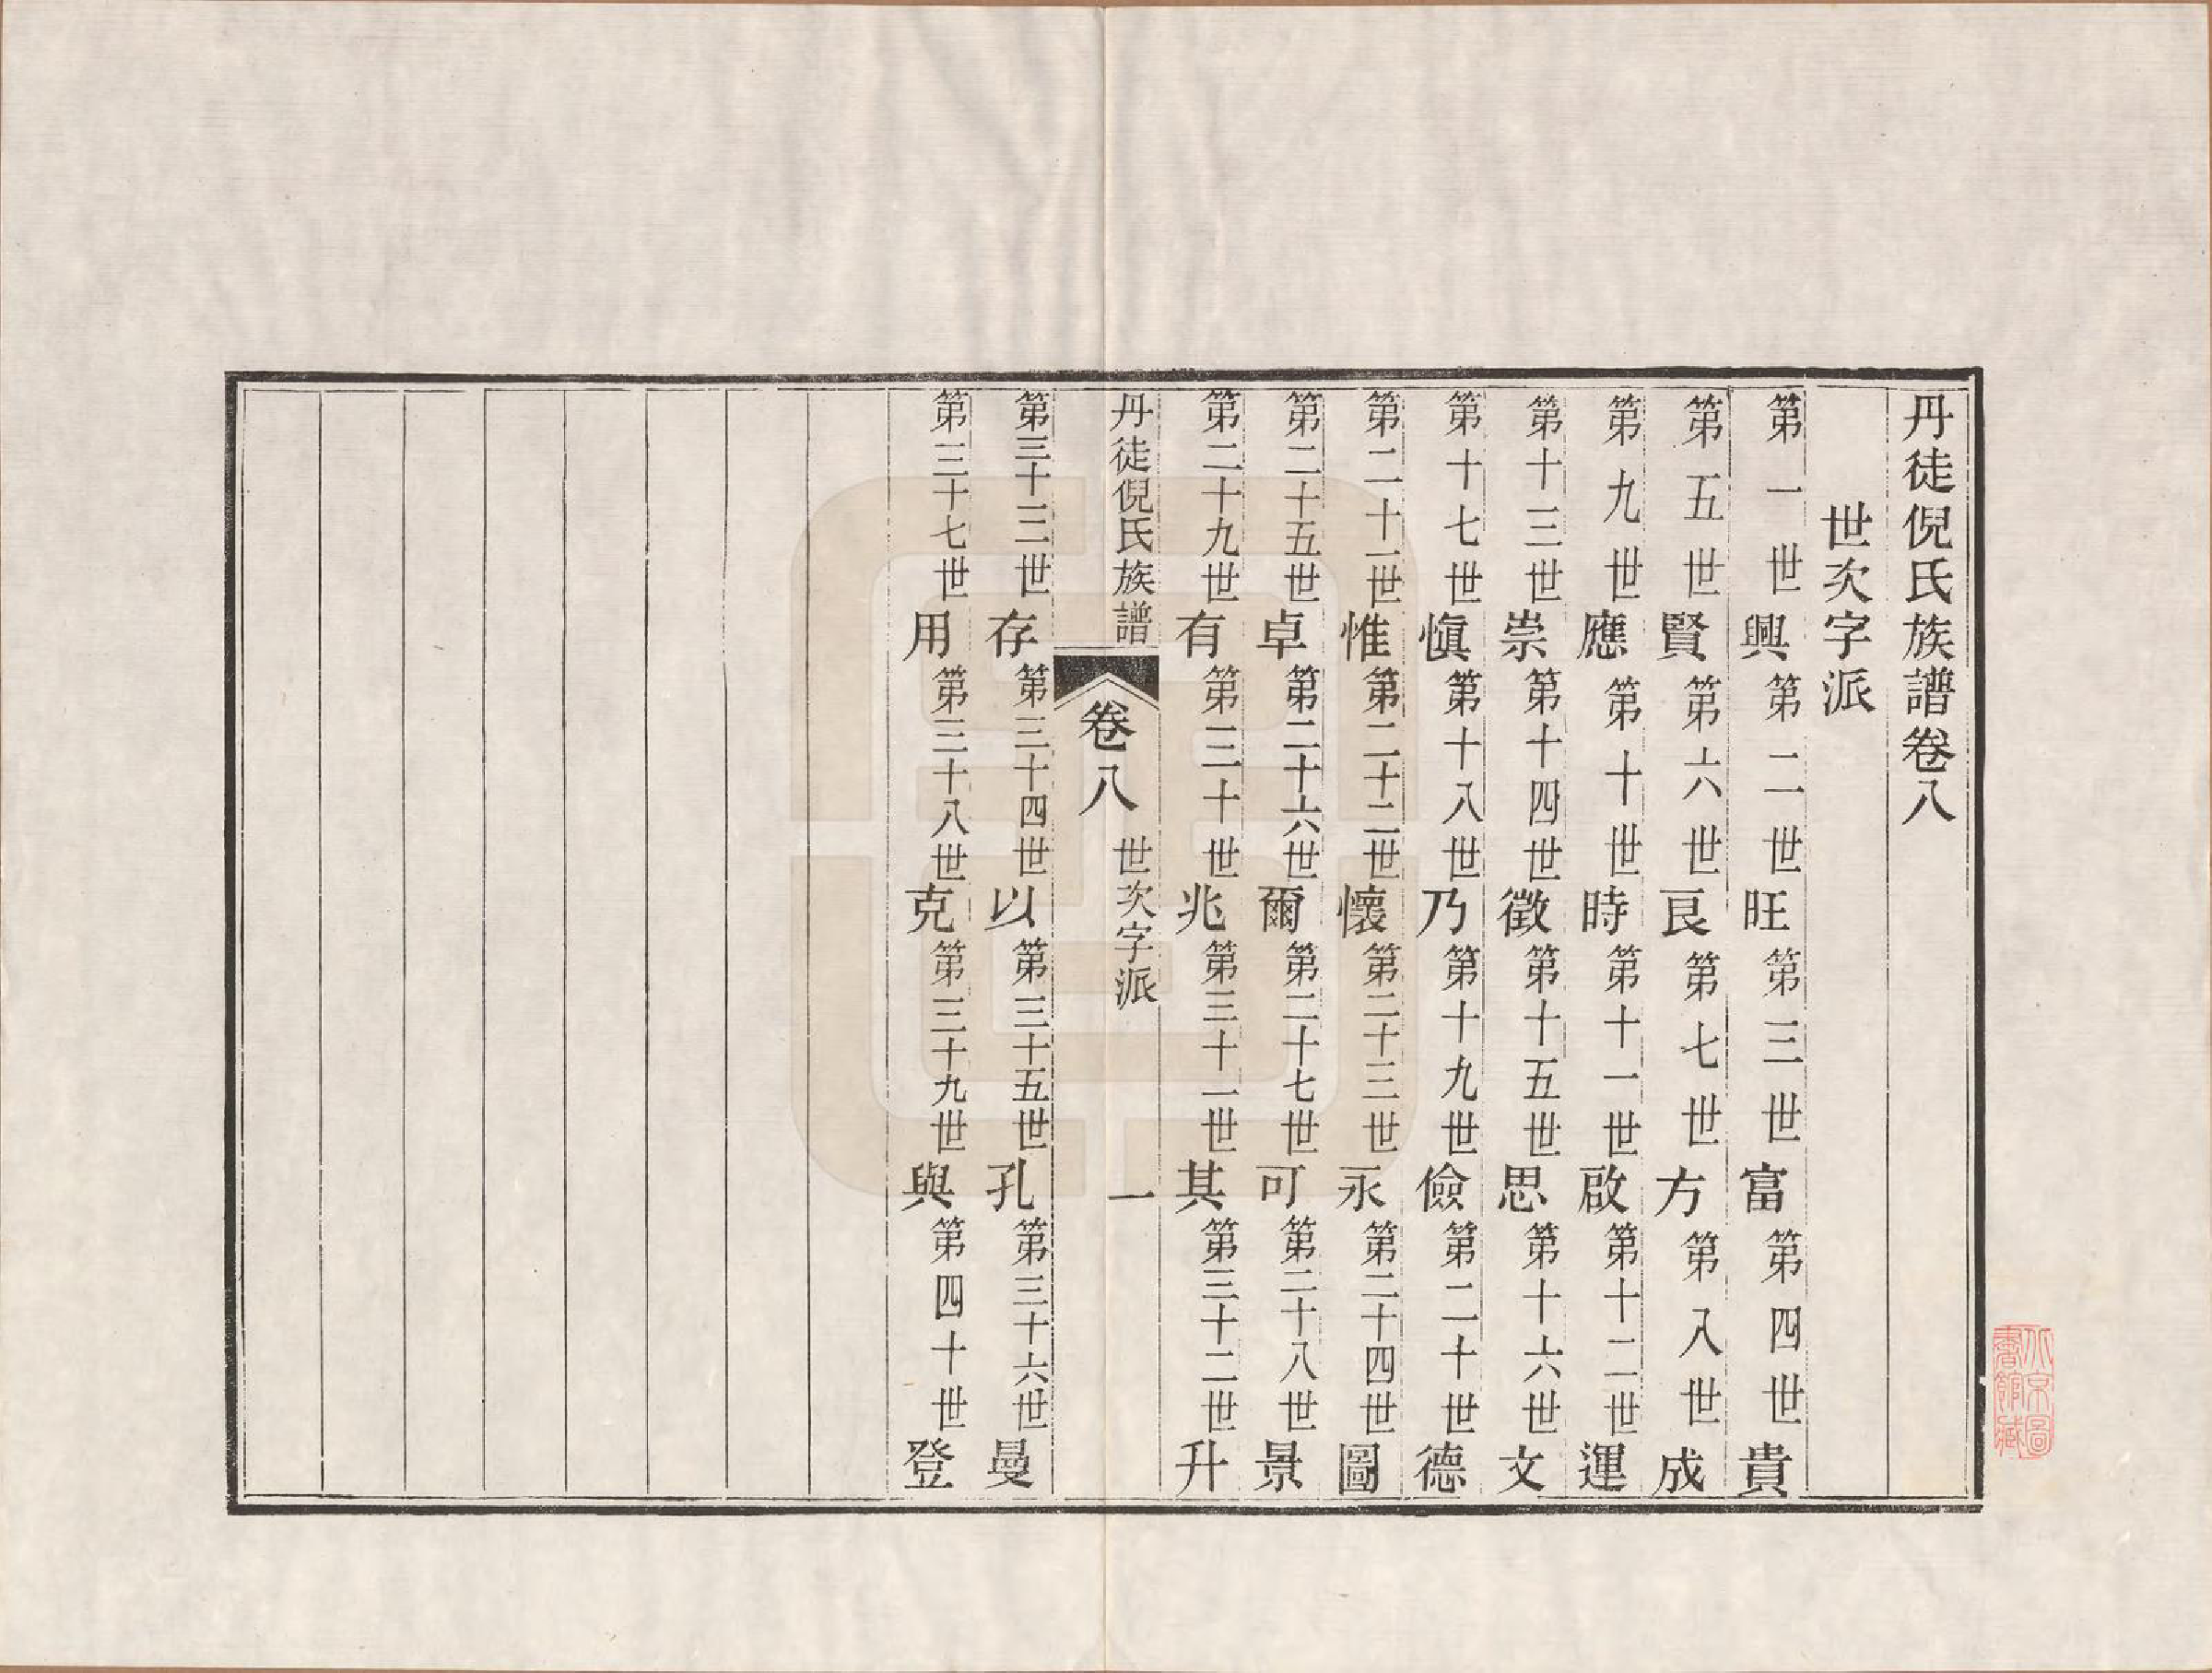 丹徒倪氏族譜卷八
世次字派
第一世興第二世旺第三世富第四世貴
第五世賢第六世良第七世方第八世成
第九世應第十世時第十一世啟第十二世運
第十三世崇第十四世徵第十五世思第十六世文
第十七世愼第十八世乃第十九世儉第二十世德
第二十一世惟第二十二世懷第二十三世永第二十四世圖
第二十五世卓第二十六世爾第二十七世可第二十八世景
第二十九世有第三十世兆第三十一世其第三十二世升
丹徒倪氏族譜 卷八 世次字派 一
第三十三世存第三十四世以第三十五世孔第三十六世曼
第三十七世用第三十八世克第三十九世與第四十世登
北京圖
書館藏